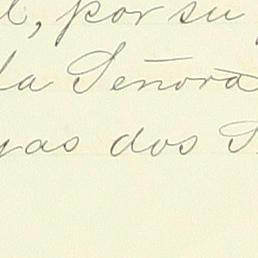 por su
la Señora
dos